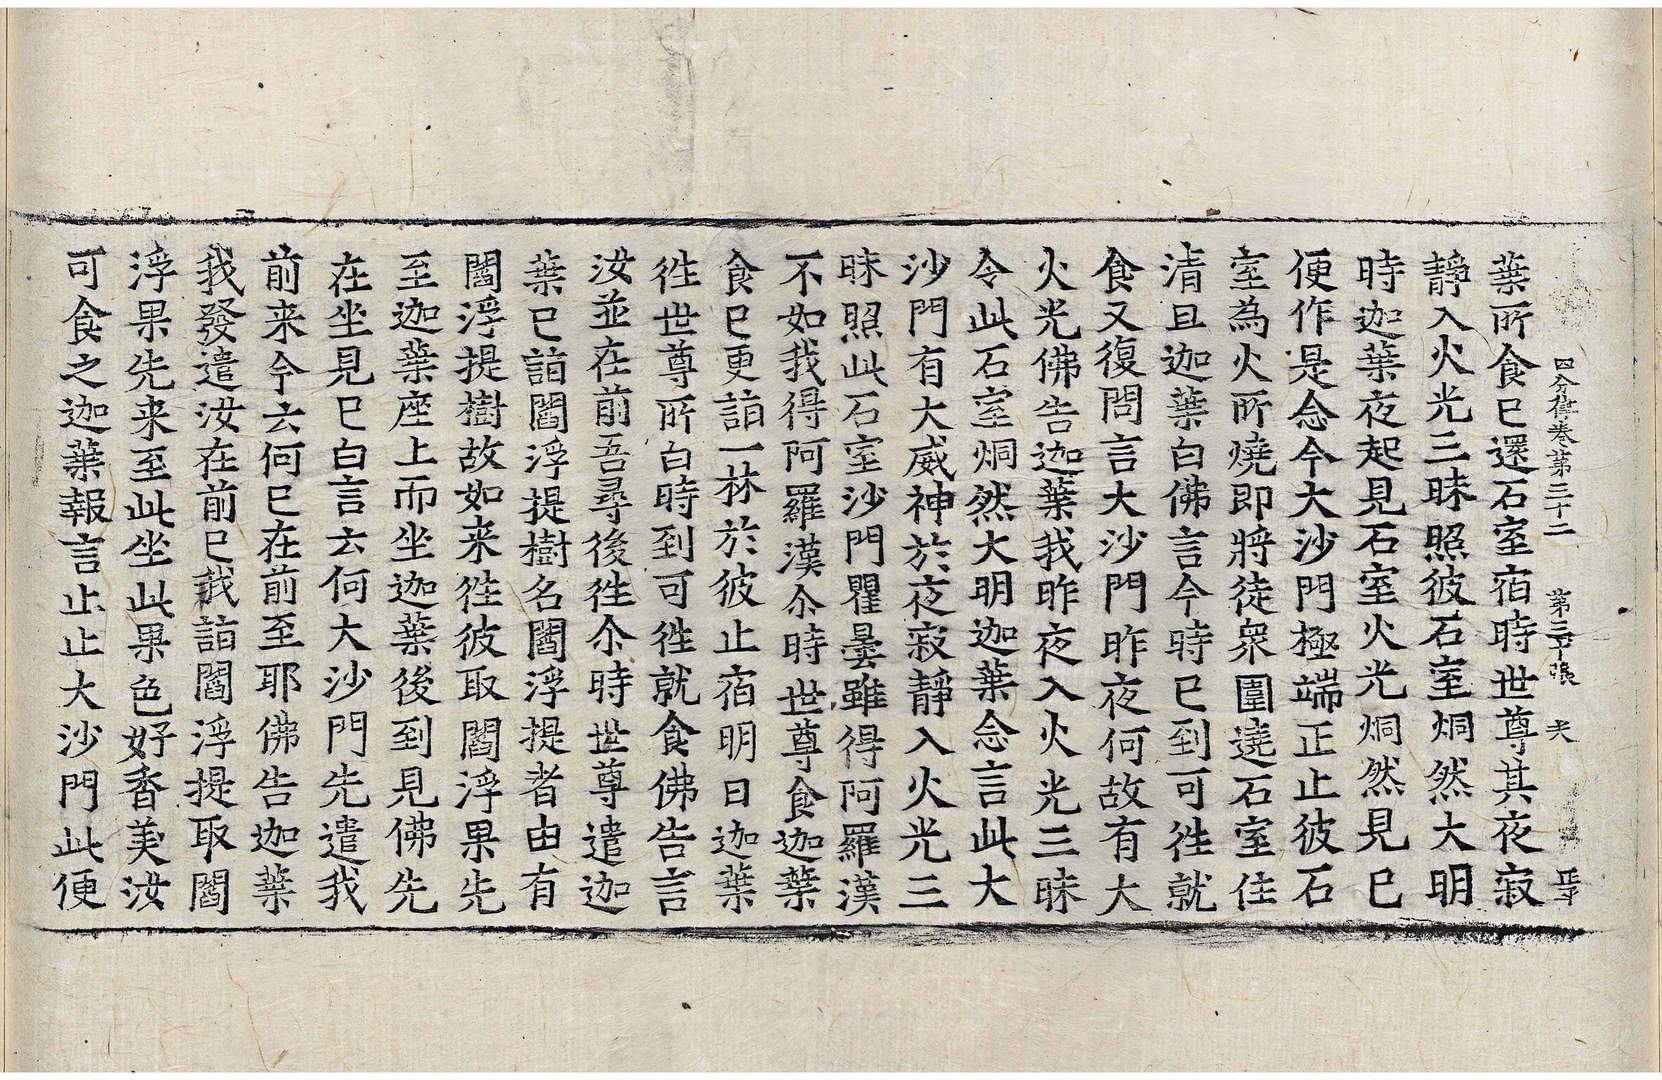 四分律卷第三十二 第三十張 夫
葉所食已還石室宿時世尊其夜寂
靜入火光三昧照彼石室烔然大明
時迦葉夜起見石室火光烔然見已
便作是念今大沙門極端正止彼石
室為火所燒即將徒衆圍遶石室住
清旦迦葉白佛言今時已到可徃就
食又復問言大沙門昨夜何故有大
火光佛告迦葉我昨夜入火光三昧
令此石室烔然大明迦葉念言此大
沙門有大威神於夜寂靜入火光三
昧照此石室沙門瞿曇雖得阿羅漢
不如我得阿羅漢尒時世尊食迦葉
食已更詣一林於彼止宿明日迦葉
徃世尊所白時到可徃就食佛告言
汝並在前吾尋後徃尒時世尊遣迦
葉已詣閻浮提樹名閻浮提者由有
閻浮提樹故如来徃彼取閻浮果先
至迦葉座上而坐迦葉後到見佛先
在坐見已白言云何大沙門先遣我
前来今云何已在前至耶佛告迦葉
我發遣汝在前已我詣閻浮提取閻
浮果先来至此坐此果色好香美汝
可食之迦葉報言止止大沙門此便